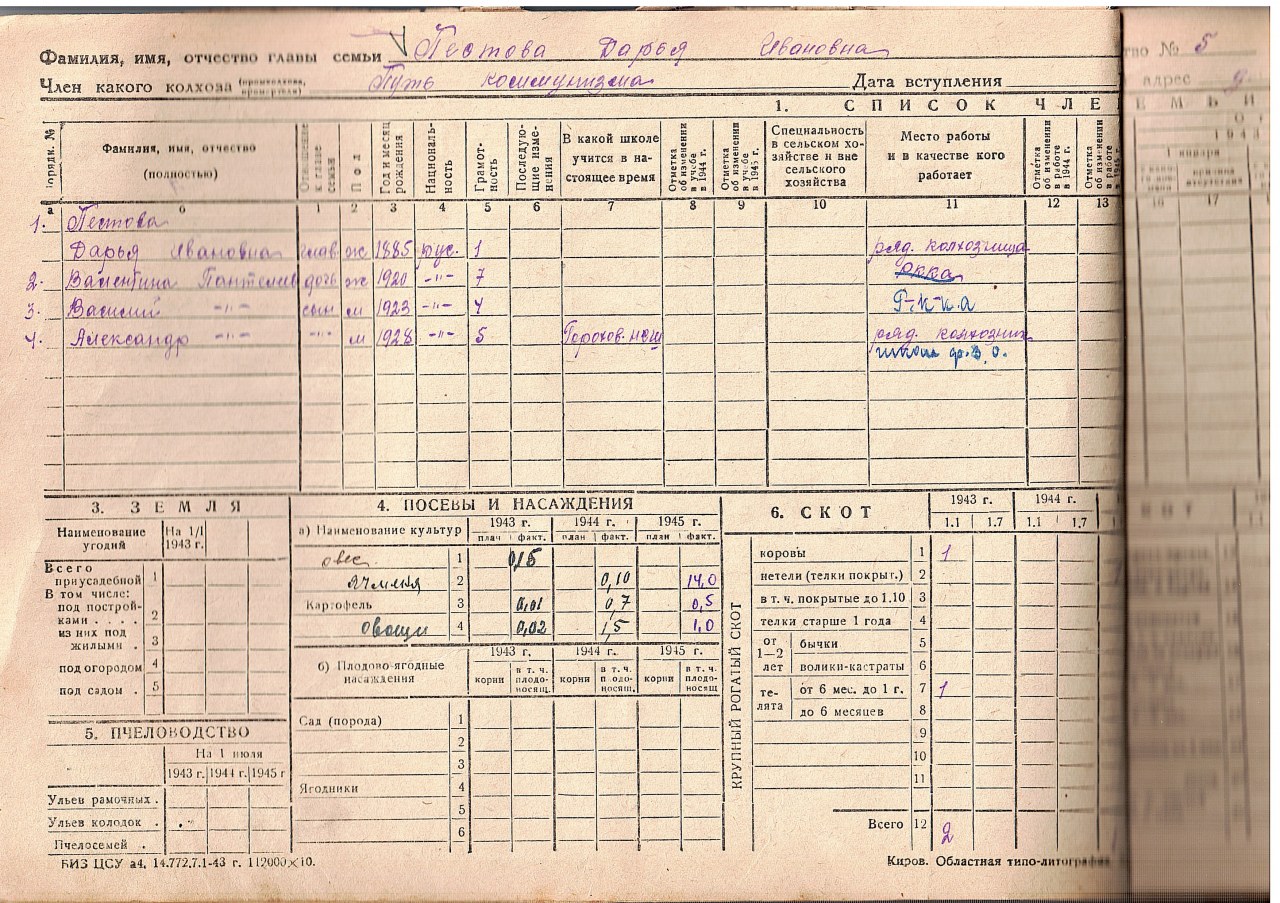 Фамилия, имя, отчество главы семьи Пестова Дарья Ивановна
Член какого колхоза Путь коммунизма Дата вступления
тво № 5
адрес
1. СПИСОК ЧЛЕ
Порядк. №
Фамилия, имя, отчество (полностью)
Отношение к главе семьи
Пол
Год и месяц рождения
Националь-ность
Грамот-ность
Последую-щие изме-нения
В какой школе учится в на-стоящее время
Отметка об изменении в учебе в 1944 г.
Отметка об изменении в учебе в 1945 г.
Специальность в сельском хо-зяйстве и вне сельского хозяйства
Место работы и в качестве кого работает
Отметка об изменении в работе в 1944 г.
Отметка об изменении в работе
1943
1 января
а б 1 2 3 4 5 6 7 8 9 10 11 12 13 16 17
1. Пестова
Дарья Ивановна глав. ж 1885 рус. 1 ряд. колхозница
2. Валентина Пантелеев дочь ж 1920 -"- 7 РККА
3. Василий -"- сын м 1923 -"- 4 Р-к-к-а
4. Александр -"- -"- м 1928 -"- 5 Горохов. НСШ ряд. колхозник
школа ф.З.О.
3. ЗЕМЛЯ
Наименование угодий На 1/I 1943 г.
Всего приусадебной 1
В том числе:
под построй-ками . . . . 2
из них под жилыми . 3
под огородом 4
под садом . 5
5. ПЧЕЛОВОДСТВО
На 1 июля
1943 г. 1944 г. 1945 г
Ульев рамочных .
Ульев колодок .
Пчелосемей .
4. ПОСЕВЫ И НАСАЖДЕНИЯ
а) Наименование культур 1943 г. 1944 г. 1945 г.
план факт. план факт. план факт.
овес 1 0,15
ячменя 2 0,10 14,0
Картофель 3 0,01 0,7 0,5
овощи 4 0,02 1,5 1,0
б) Плодово-ягодные насаждения 1943 г. 1944 г. 1945 г.
корни в т. ч. плодо-носящ. корни в т. ч. плодо-носящ. корни в т. ч. плодо-носящ
Сад (порода) 1
2
3
Ягодники 4
5
6
6. СКОТ 1943 г. 1944 г.
1.1 1.7 1.1 1.7
КРУПНЫЙ РОГАТЫЙ СКОТ
коровы 1 1
нетели (телки покрыт.) 2
в т. ч. покрытые до 1.10 3
телки старше 1 года 4
от 1—2 лет бычки 5
волики-кастраты 6
те-лята от 6 мес. до 1 г. 7 1
до 6 месяцев 8
9
10
11
Всего 12 2
БИЗ ЦСУ а4, 14.772.7.1-43 г. 112000×10.
Киров. Областная типо-литография